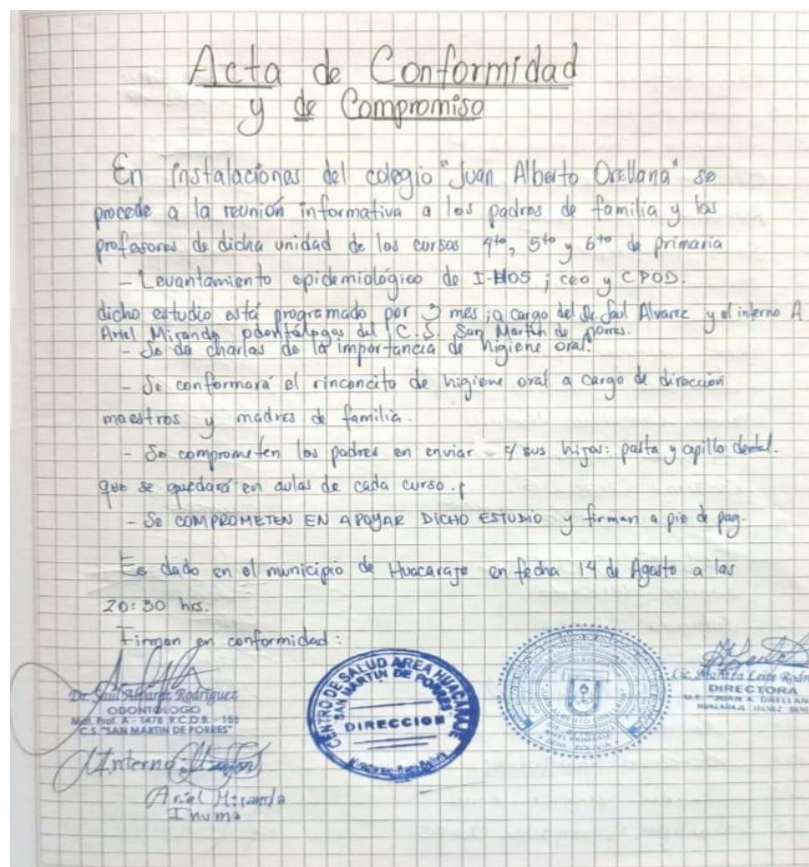 Acta de Conformidad
y de Compromiso
En instalaciones del colegio "Juan Alberto Orellana" se
procede a la reunión informativa a los padres de familia y los
profesores de dicha unidad de los cursos 4to, 5to y 6to de primaria
- Levantamiento epidemiológico de I-HOS ; ceo y CPOD.
dicho estudio está programado por 3 mes ; a cargo del Dr. Saul Alvarez y el interno A
Ariel Miranda odontólogos del C.S. San Martin de porres.
- Se da charlas de la importancia de higiene oral.
- Se conformará el rinconcito de higiene oral a cargo de dirección
maestros y madres de familia.
- Se comprometen los padres en enviar c/ sus hijos: pasta y cepillo dental.
que se quedará en aulas de cada curso.
- Se COMPROMETEN EN APOYAR DICHO ESTUDIO y firman a pie de pag.
Es dado en el municipio de Huacaraje en fecha 14 de Agosto a las
20:30 hrs.
Firman en conformidad:
Dr. Saul Alvarez Rodriguez
ODONTOLOGO
Mat. Prof. A - 1478 R.C.D.B. - 155
C.S. "SAN MARTIN DE PORRES"
Interno
Ariel Miranda
Inuma
CENTRO DE SALUD AREA HUACARAJE
SAN MARTIN DE PORRES
DIRECCION
DIRECTORA